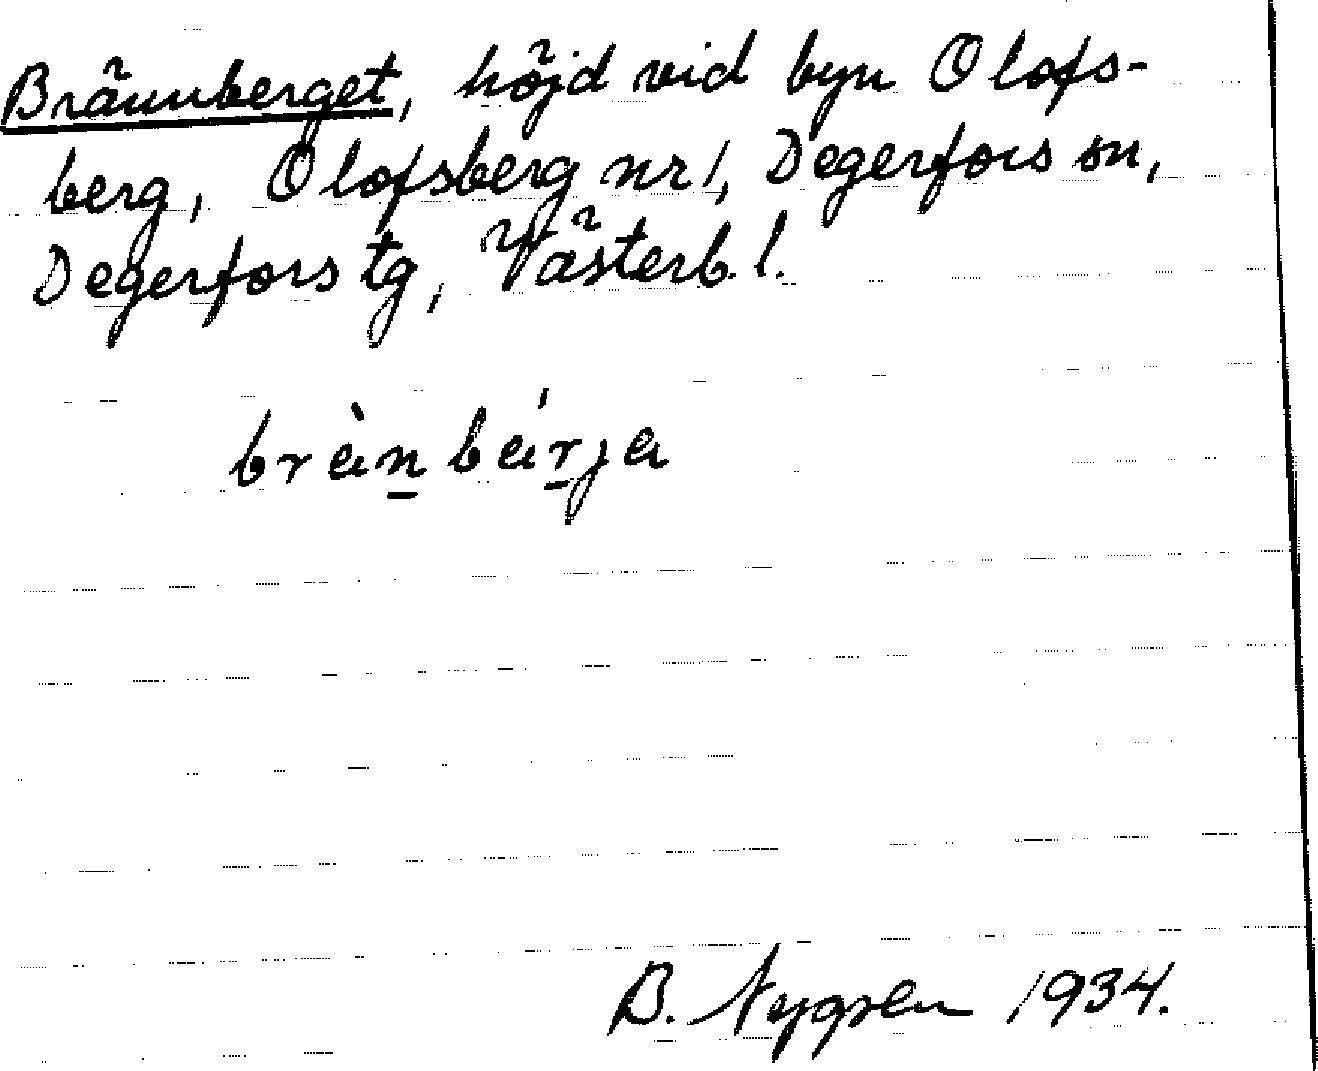 Brännberget, höjd vid byn Olofs-
berg, Olofsberg nr 1, Degerfors sn,
Degerfors tg, Västerb. l.
brànbárja
B. Nygren 1934.